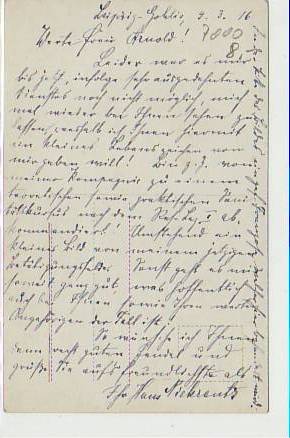 Leipzig-Gohlis, 9. 3. 16
Werte Frau Arnold!
7000
8
Leider war es mir
bis jetzt, infolge sehr ausgedehnten
Dienstes noch nicht möglich, mich
mal wieder bei Ihnen sehen zu
lassen, weshalb ich Ihnen hiermit
ein kleines Lebenszeichen von
mir geben will! Bin z. Z. von
meiner Kompagnie zu einem
theoretischen sowie praktischen Sani-
tätskursus nach dem Res. Laz. I ab-
kommandiert! Umstehend ein
kleines Bild von meinem jetzigen
Betätigungsfelde. Sonst geht es mir
soweit ganz gut, was hoffentlich
auch bei Ihnen sowie Ihren werten
Angehörigen der Fall ist.
So wünsche ich Ihnen
denn recht guten Handel und
grüße Sie aufs freundlichste als
Ihr Hans